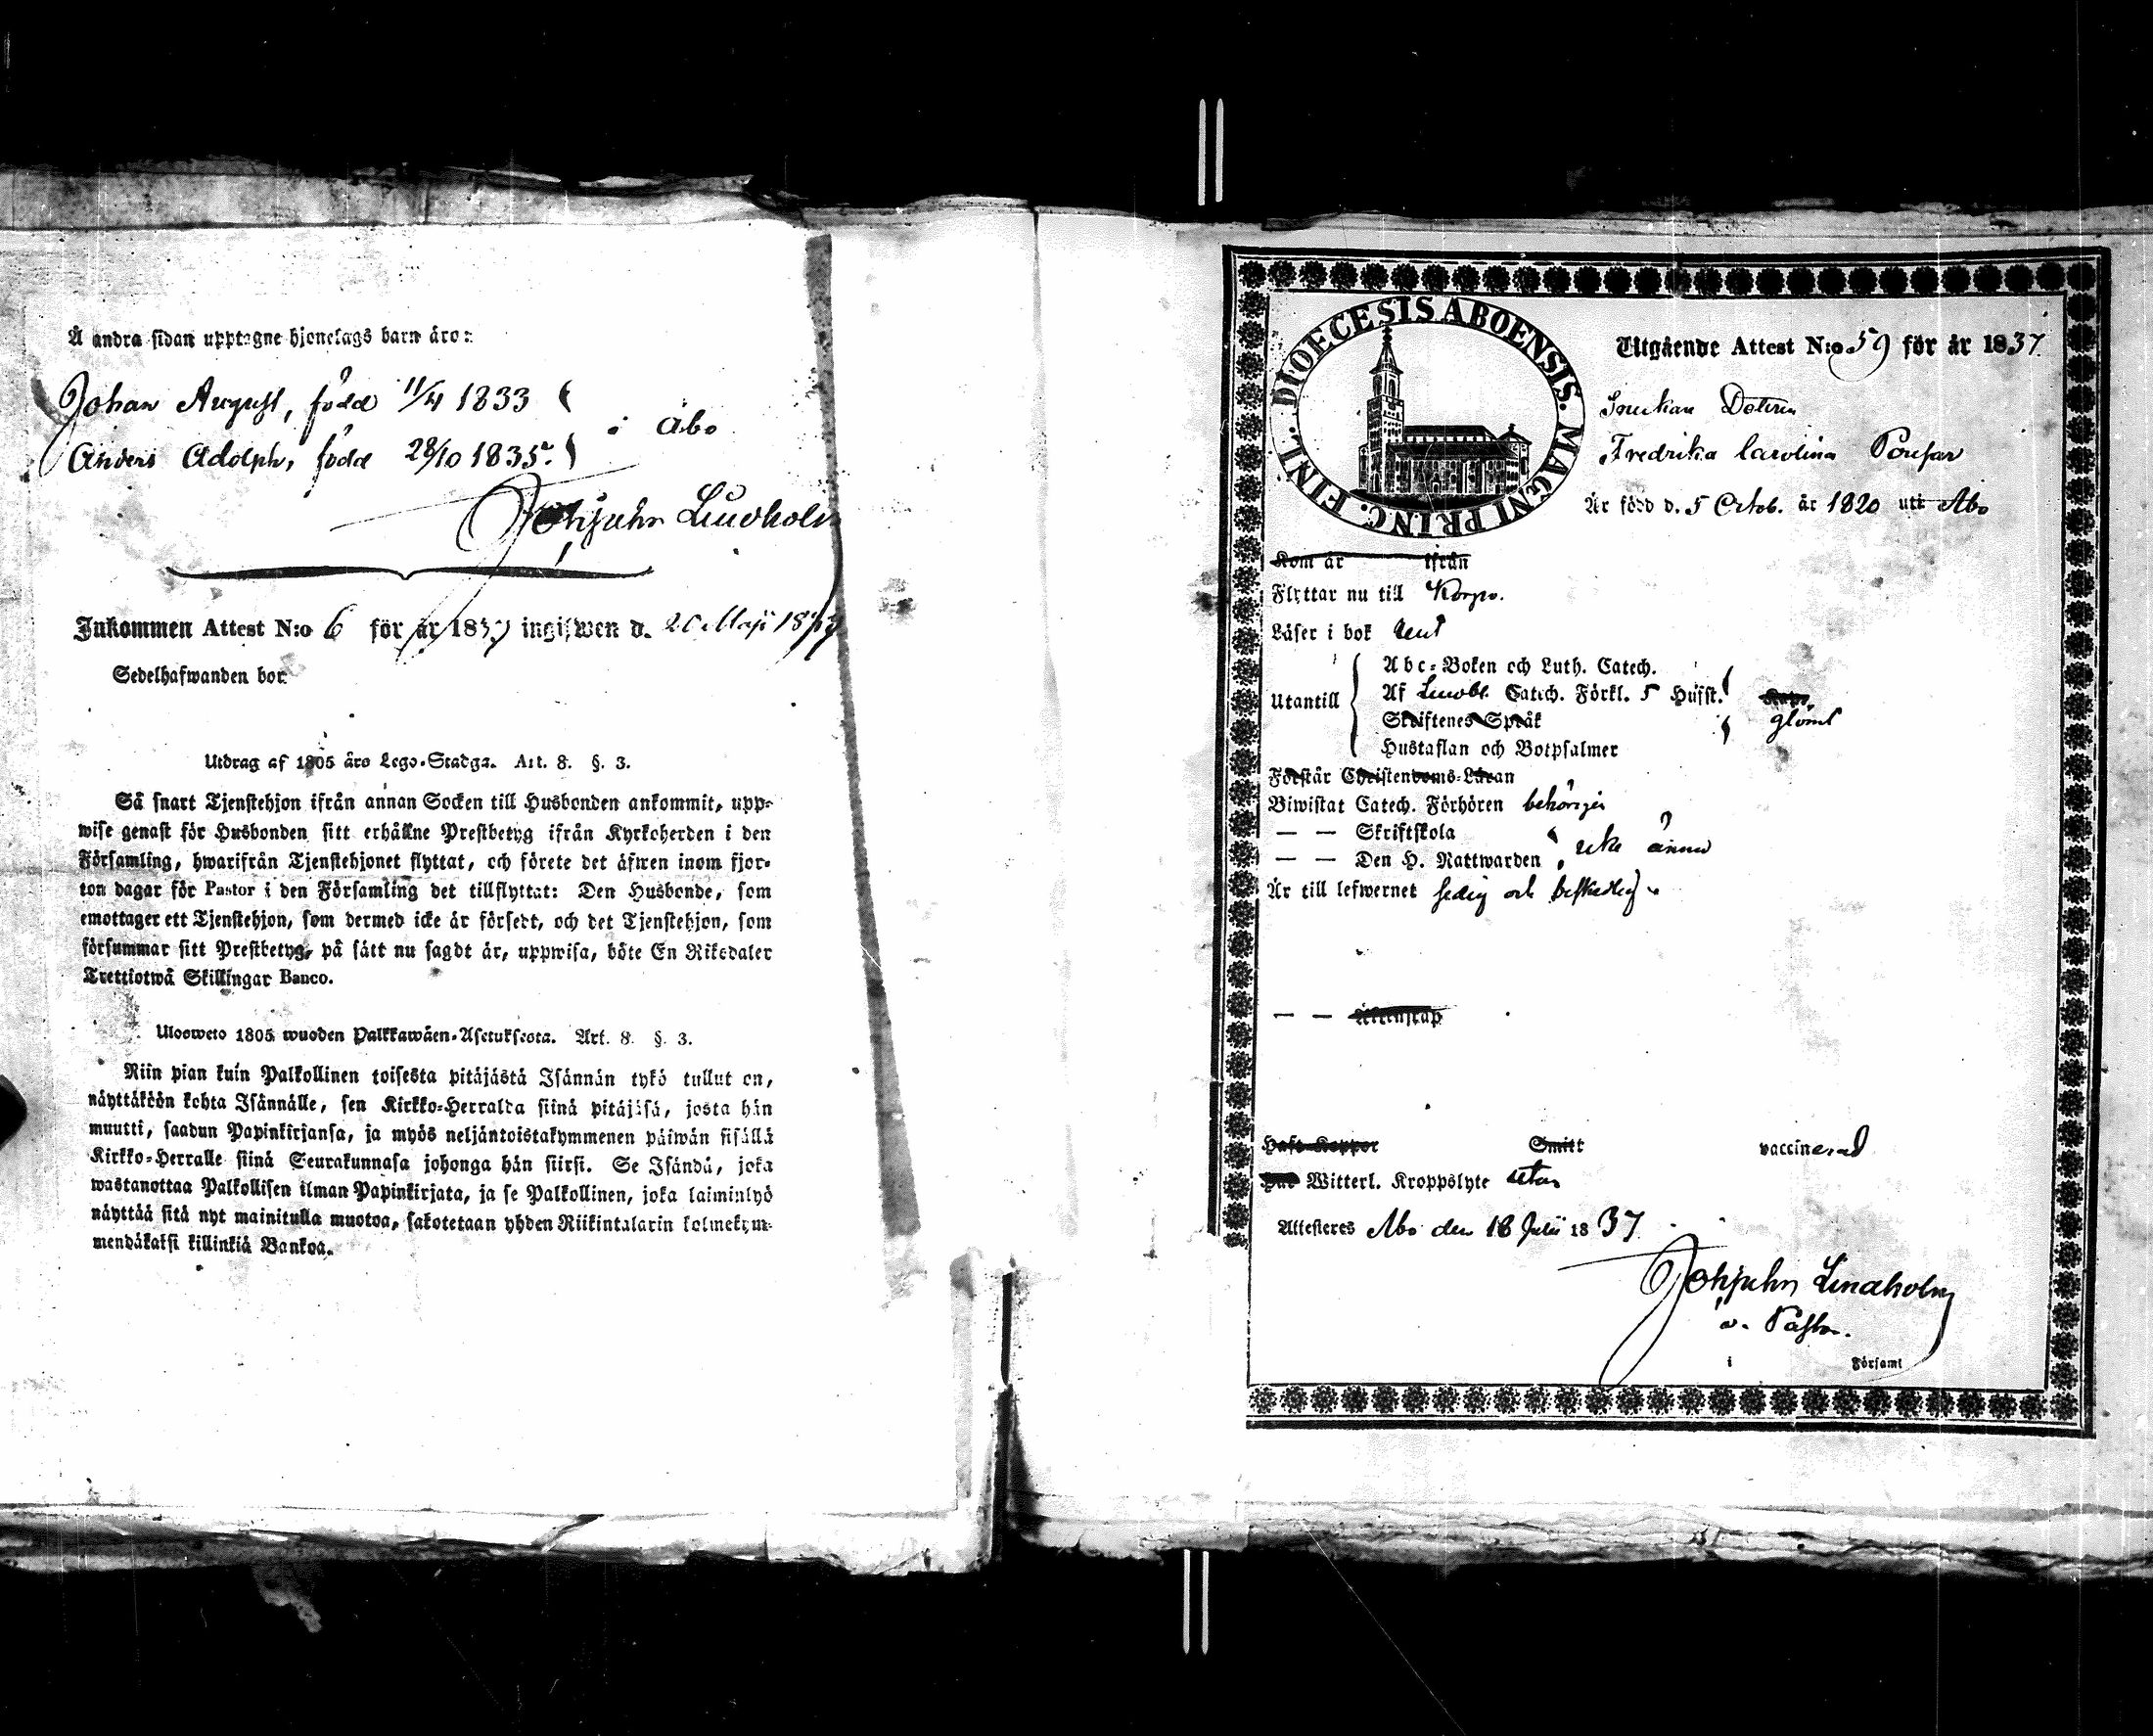 Å andra sidan upptagne hjonelags barn äro:
Johan August, född 11/4 1833
i Åbo
Anders Adolph, född 28/10 1835.
Lindholm
Inkommen Attest N:o 6 för år 1837 ingifwen d. 20 Maji 1837
Sedelhafwanden bor
Utdrag af 1805 års Lego-Stadga. Art. 8. §. 3.
Så snart Tjenstehjon ifrån annan Socken till Husbonden ankommit, upp-
wise genast för Husbonden sitt erhållne Prestbetyg ifrån Kyrkoherden i den
Församling, hwarifrån Tjenstehjonet flyttat, och förete det äfwen inom fjor-
ton dagar för Pastor i den Församling det tillflyttat: Den Husbonde, som
emottager ett Tjenstehjon, som dermed icke är försedt, och det Tjenstehjon, som
försummar sitt Prestbetyg, på sätt nu sagdt är, uppwisa, böte En Riksdaler
Trettiotwå Skillingar Banco.
Ulosweto 1805 wuoden Palkkawäen-Asetuksesta. Art. 8. §. 3.
Niin pian kuin Palkollinen toisesta pitäjästä Isännän tykö tullut on,
näyttäköön kohta Isännälle, sen Kirkko-Herralda siinä pitäjäsä, josta hän
muutti, saadun Papinkirjansa, ja myös neljäntoistakymmenen päiwän sisällä
Kirkko-Herralle siinä Seurakunnasa johonga hän siirsi. Se Isändä, joka
wastanottaa Palkollisen ilman Papinkirjata, ja se Palkollinen, joka laiminlyö
näyttää sitä nyt mainitulla muotoa, sakotetaan yhden Riikintalarin kolmekym-
mendäkaksi killinkiä Bankoa.
DIOECESIS ABOENSIS. MAGNI PRINC. FINL.
Utgående Attest N:o 59 för år 1837
Fredrika Carolina
Är född d. 5 Octob. år 1820 uti Åbo
Kom år ifrån
Flyttar nu till Korpo.
Läser i bok rent
Abc-Boken och Luth. Catech.
Utantill Af Catech. Förkl. 5 Hufst.
glömt
Skriftenes Språk
Hustaflan och Botpsalmer
Förstår Christendoms-Läran
Biwistat Catech. Förhören behörigen
— — Skriftskola
— — Den H. Nattwarden icke ännu
Är till lefwernet sedig och beskedlig
— — Äktenskap
Haft Koppor Smitt vaccinerad
Har Witterl. Kroppslyte utan
Attesteres Åbo den 18 Julii 1837.
Lindholm
v. Pastor.
i Församl